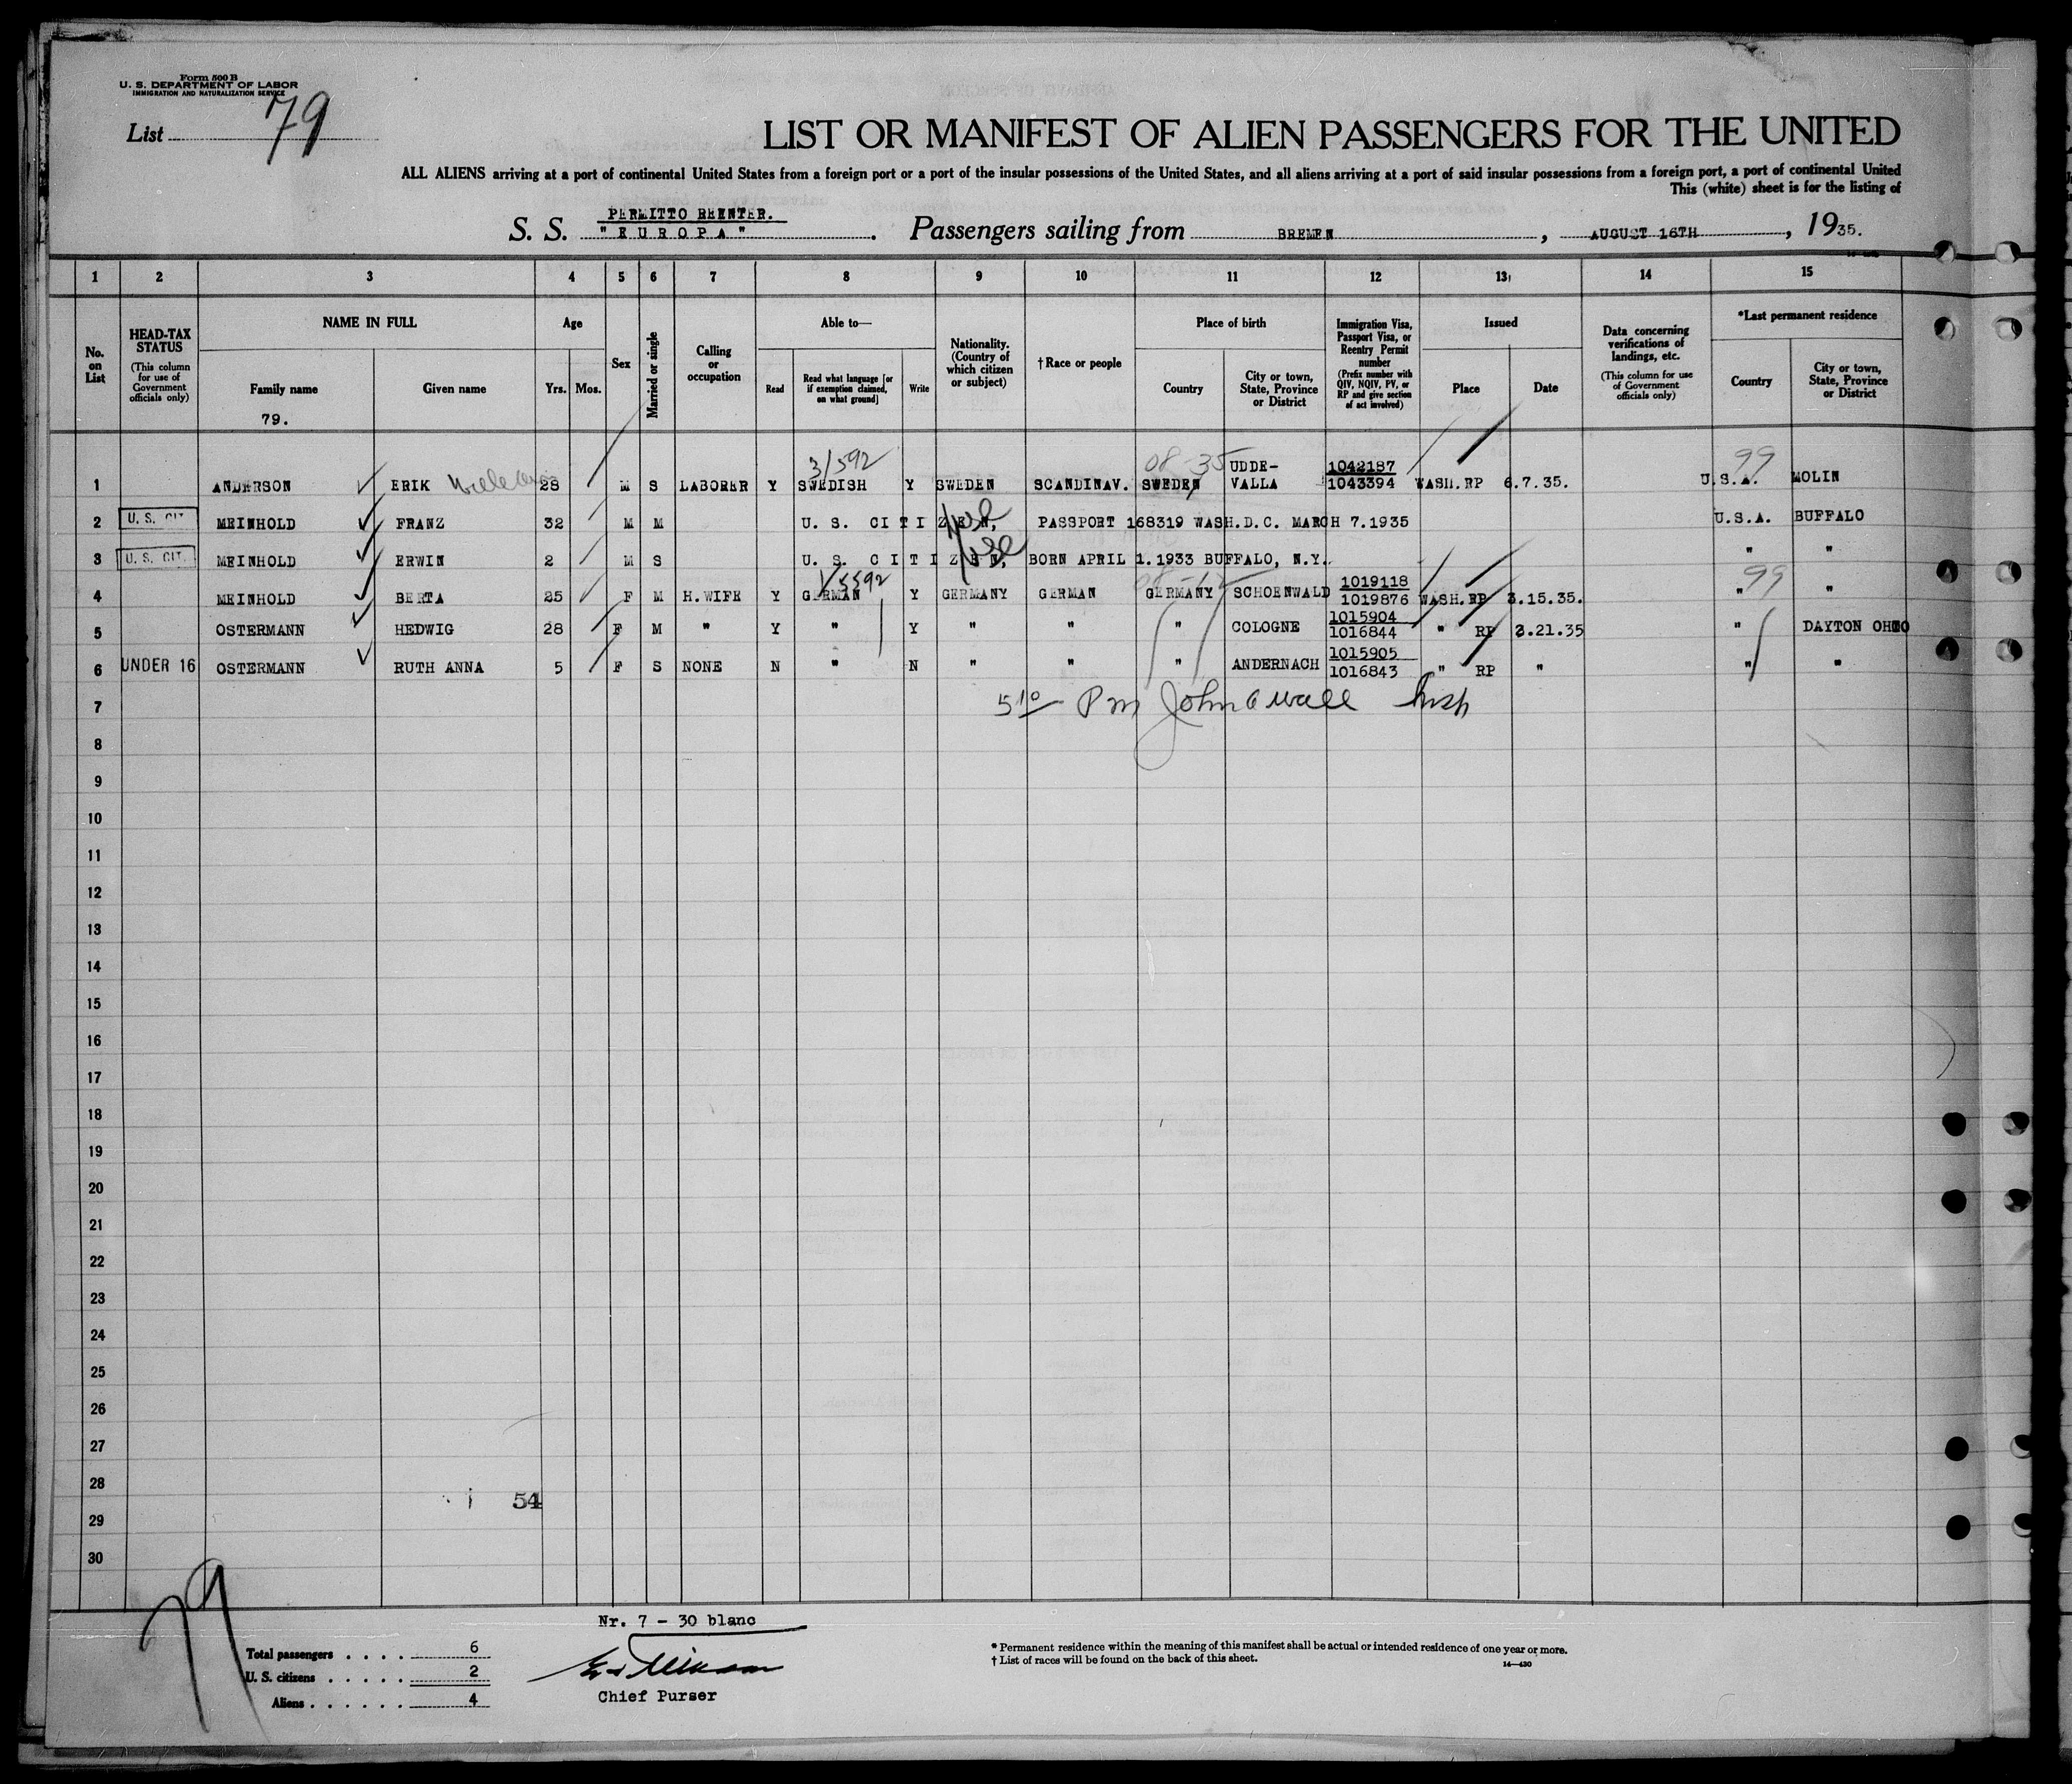 Form 500 B
U. S. DEPARTMENT OF LABOR
IMMIGRATION AND NATURALIZATION SERVICE
List 79
LIST OR MANIFEST OF ALIEN PASSENGERS FOR THE UNITED
ALL ALIENS arriving at a port of continental United States from a foreign port or a port of the insular possessions of the United States, and all aliens arriving at a port of said insular possessions from a foreign port, a port of continental United
This (white) sheet is for the listing of
PERMITTO REENTER.
S. S. "EUROPA". Passengers sailing from BREMEN, AUGUST 16TH, 1935.
1 2 3 4 5 6 7 8 9 10 11 12 13 14 15
No. on List
HEAD-TAX STATUS (This column for use of Government officials only)
NAME IN FULL
Family name
Given name
79.
Age
Yrs. Mos.
Sex
Married or single
Calling or occupation
Able to—
Read
Read what language [or if exemption claimed, on what ground]
Write
Nationality. (Country of which citizen or subject)
†Race or people
Place of birth
Country
City or town, State, Province or District
Immigration Visa, Passport Visa, or Reentry Permit number (Prefix number with QIV, NQIV, PV, or RP and give section of act involved)
Issued
Place
Date
Data concerning verifications of landings, etc. (This column for use of Government officials only)
*Last permanent residence
Country
City or town, State, Province or District
3/592 08-35 99
1 ANDERSON ERIK 28 M S LABORER Y SWEDISH Y SWEDEN SCANDINAV. SWEDEN UDDE-VALLA 1042187 1043394 WASH. RP 6.7.35. U.S.A. MOLIN
2 U. S. CIT. MEINHOLD FRANZ 32 M M U. S. CITIZEN, PASSPORT 168319 WASH.D.C. MARCH 7.1935 U.S.A. BUFFALO
3 U. S. CIT. MEINHOLD ERWIN 2 M S U. S. CITIZEN, BORN APRIL 1.1933 BUFFALO, N.Y. " "
4 MEINHOLD BERTA 25 F M H.WIFE Y GERMAN Y GERMANY GERMAN GERMANY SCHOENWALD 1019118 1019876 WASH. RP 3.15.35. 99 " "
5 OSTERMANN HEDWIG 28 F M " Y " Y " " " COLOGNE 1015904 1016844 " RP 3.21.35 " DAYTON OHIO
6 UNDER 16 OSTERMANN RUTH ANNA 5 F S NONE N " N " " " ANDERNACH 1015905 1016843 " RP " " "
7
5 10 Pm John C Wall Insp
8
9
10
11
12
13
14
15
16
17
18
19
20
21
22
23
24
25
26
27
28
54
29
30
79
Nr. 7 - 30 blanc
Total passengers . . . . 6
U. S. citizens . . . . . 2
Aliens . . . . . . 4
Chief Purser
* Permanent residence within the meaning of this manifest shall be actual or intended residence of one year or more.
† List of races will be found on the back of this sheet.
14—430